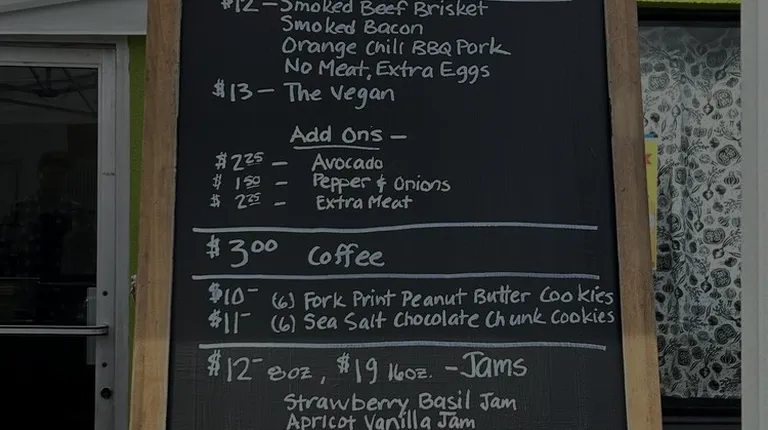 $12 - Smoked Beef Brisket
Smoked Bacon
Orange Chili BBQ Pork
No Meat, Extra Eggs
$13 - The Vegan
Add Ons -
$2.25 - Avocado
$1.50 - Pepper & Onions
$2.25 - Extra Meat
$3.00 Coffee
$10- (6) Fork Print Peanut Butter Cookies
$11- (6) Sea Salt Chocolate Chunk Cookies
$12- 8oz, $19 16oz. - Jams
Strawberry Basil Jam
Apricot Vanilla Jam